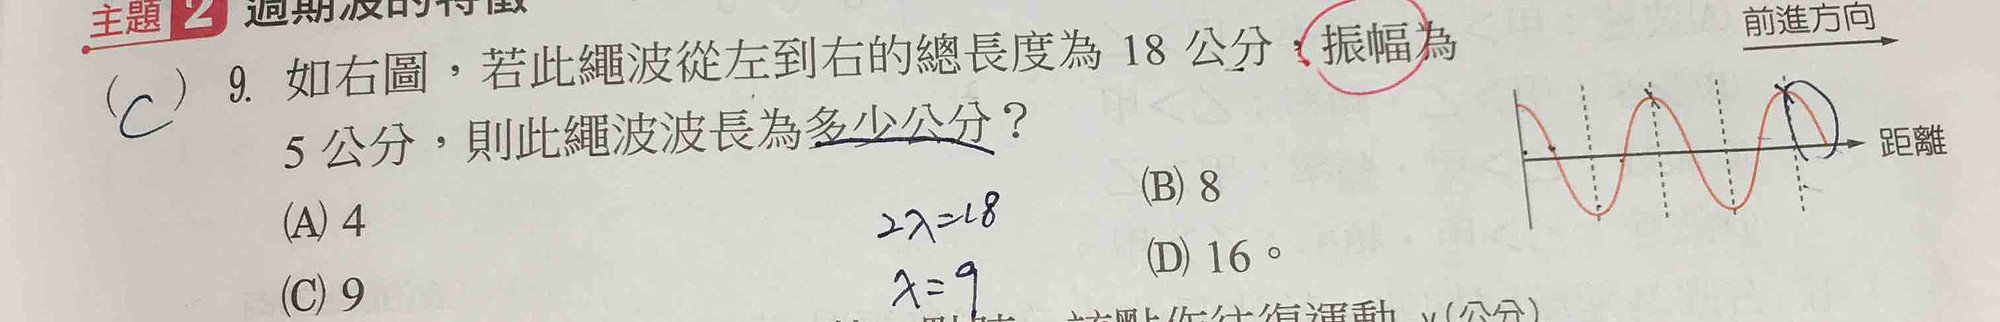 主題 2 週期波的特徵
前進方向
(C) 9. 如右圖，若此繩波從左到右的總長度為 18 公分，振幅為
5 公分，則此繩波波長為多少公分？
距離
(A) 4
(B) 8
2λ=18
(C) 9
(D) 16。
λ=9
該點作往復運動 y(公分)